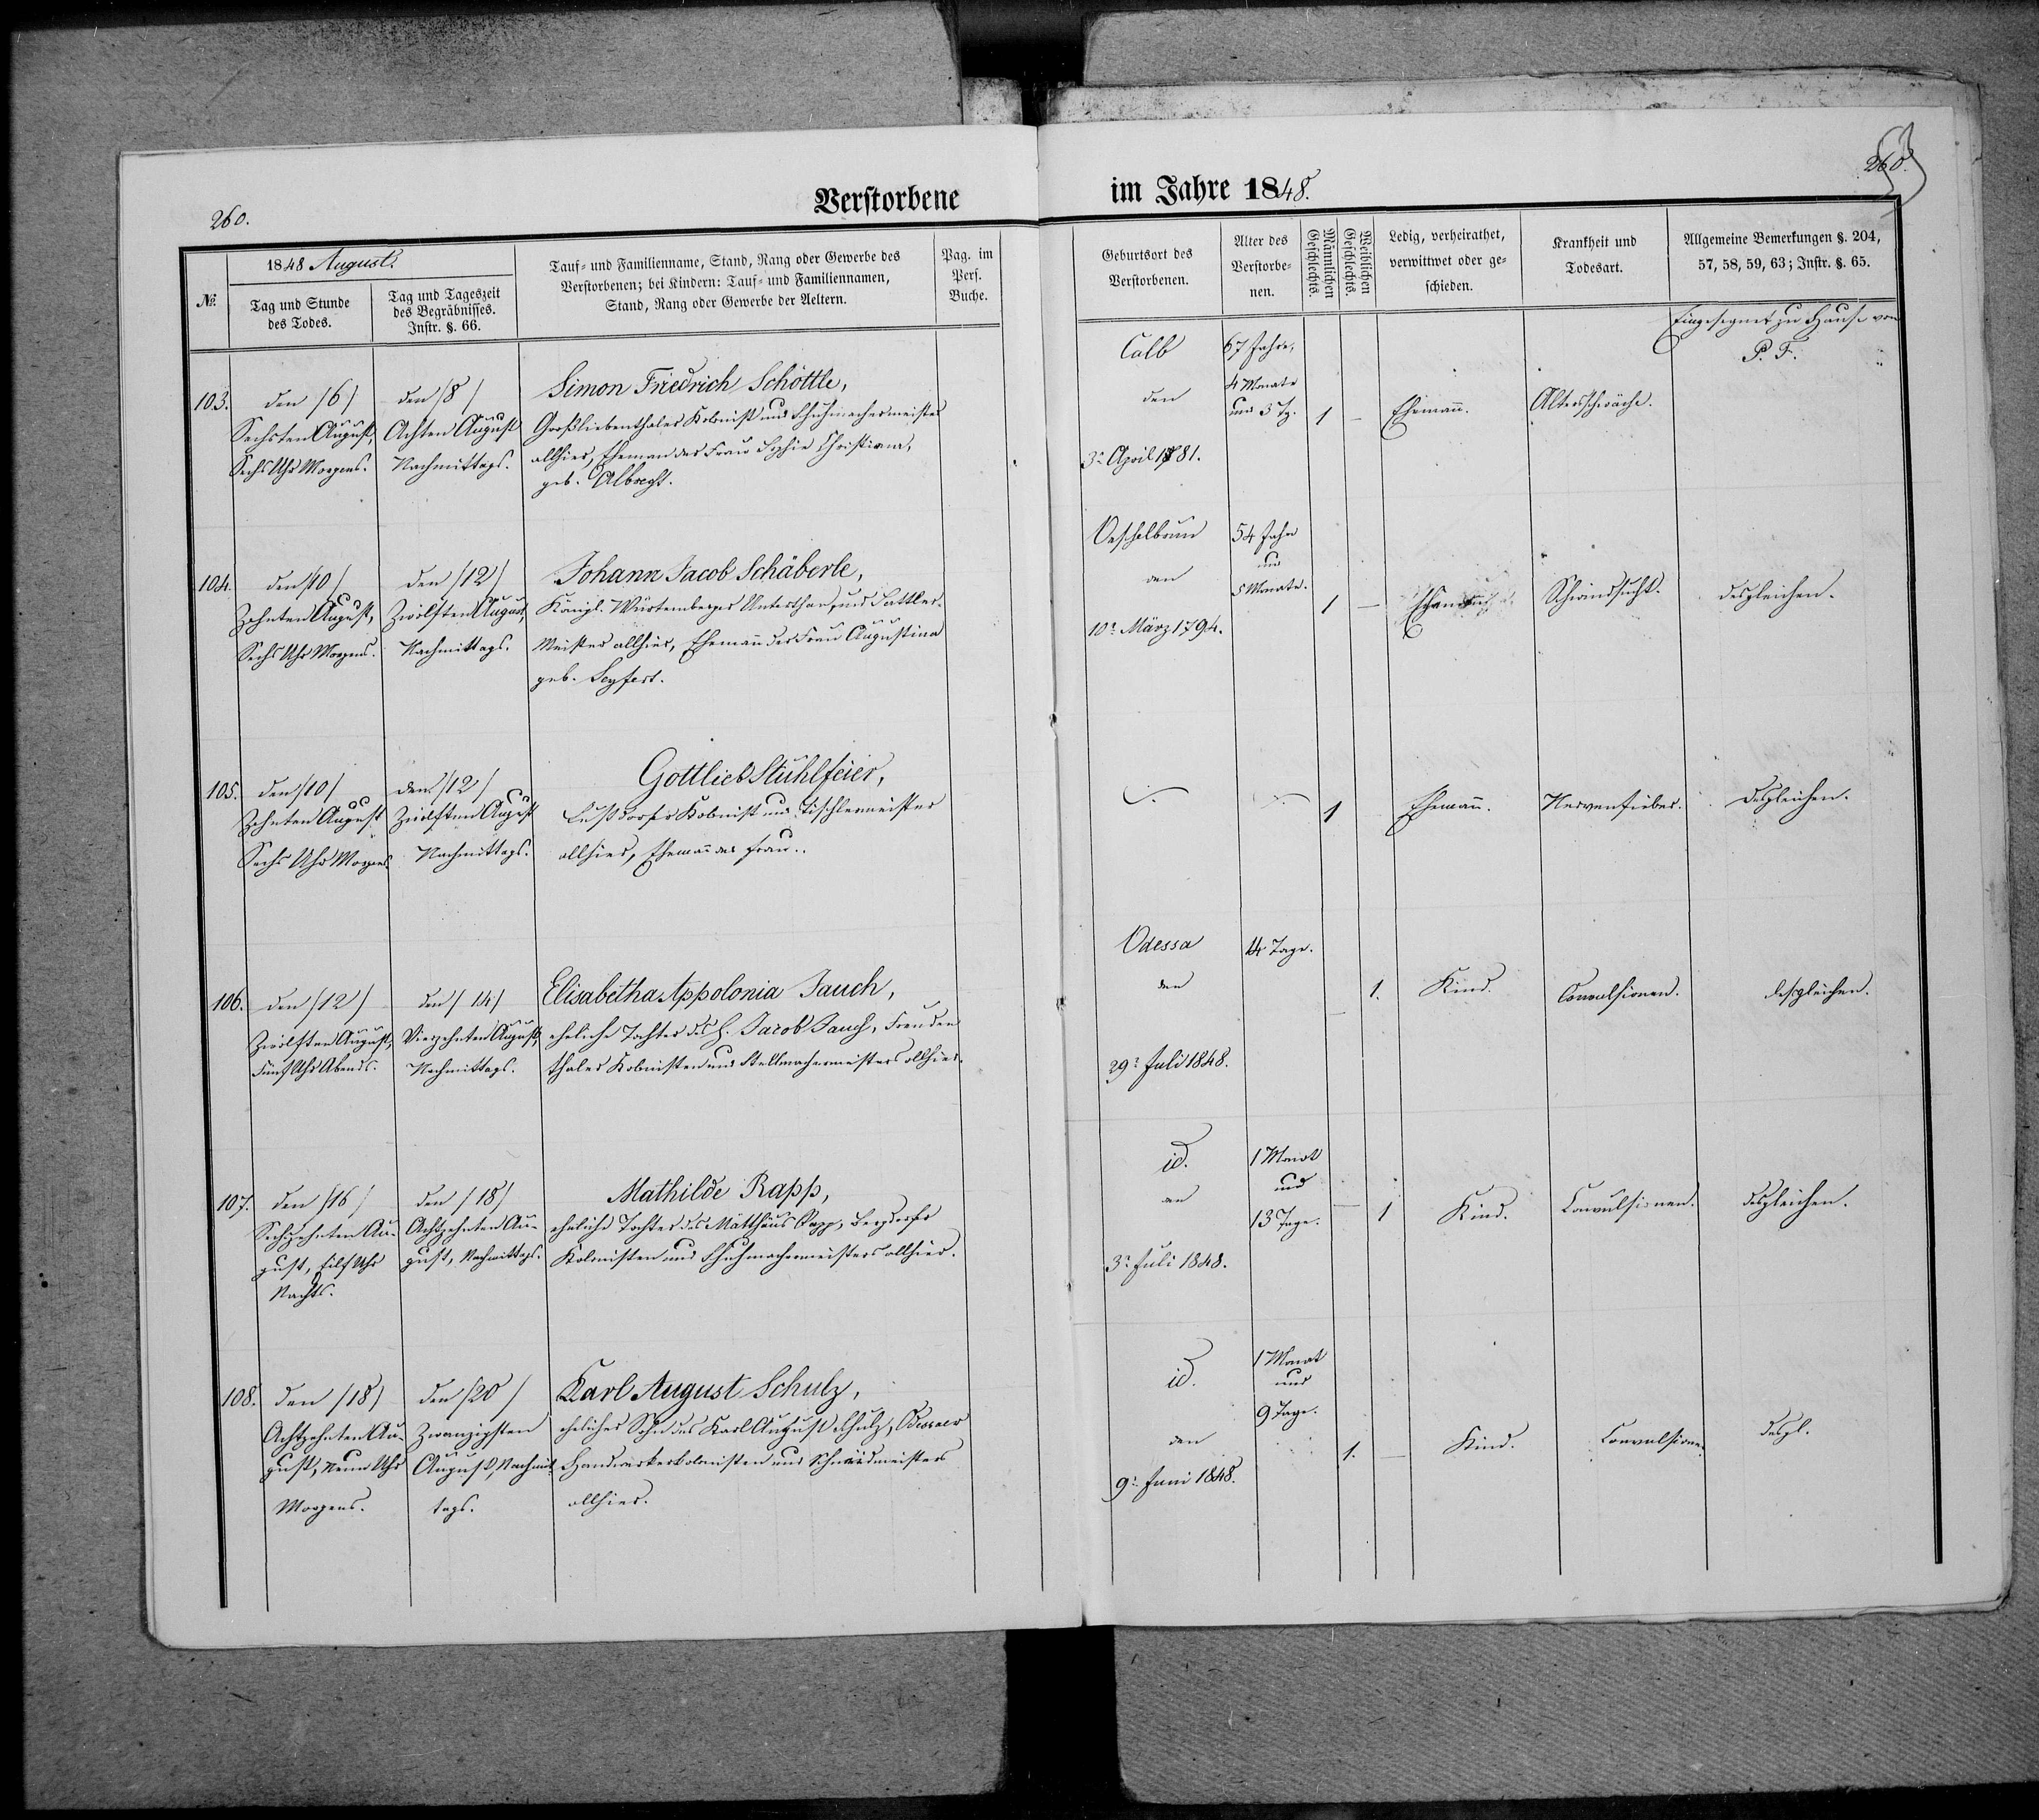 260.
Verstorbene
im Jahre 1848.
260.
№
1848 August.
Tag und Stunde
des Todes.
Tag und Tageszeit
des Begräbnisses.
Instr. §. 66.
Tauf- und Familienname, Stand, Rang oder Gewerbe des
Verstorbenen; bei Kindern: Tauf- und Familiennamen,
Stand, Rang oder Gewerbe der Aeltern.
Pag. im
Pers.
Buche.
Geburtsort des
Verstorbenen.
Alter des
Verstorbe-
nen.
Männlichen
Geschlechts.
Weiblichen
Geschlechts.
Ledig, verheirathet,
verwittwet oder ge-
schieden.
Krankheit und
Todesart.
Allgemeine Bemerkungen §. 204,
57, 58, 59, 63; Instr. §. 65.
103.
den /6/
Sechsten August,
Sechs Uhr Morgens.
den /8/
Achten August
Nachmittags.
Simon Friedrich Schöttle,
Großliebenthaler Kolonist und Schuhmachermeister
allhier, Eheman der Frau Sophie Christiana,
geb. Albrecht.
Calb
den
3n April 1781.
67 Jahre,
4 Monate
und 3 Tg.
1
—
Ehemann.
Altersschwäche.
Eingesegnet zu Hause von
P. F.
104.
den /10/
Zehnten August,
Sechs Uhr Morgens.
den /12/
Zwölften August,
Nachmittags.
Johann Jacob Schäberle,
Königl. Würtemberger Unterthan, und Sattler-
Meister allhier, Ehemann der Frau Augustina
geb. Seyfert.
Oeschelbrunn
den
10n März 1794.
54 Jahre
und
5 Monate.
1
—
Ehemann.
Schwindsucht.
desgleichen.
105.
den /10/
Zehnten August
Sechs Uhr Morgens
den /12/
Zwölften August
Nachmittags.
Gottlieb Stuhlfeier,
Lustdorfer Kolonist und Tischlermeister
allhier, Ehemann der Frau..
1
Ehemann.
Nervenfieber.
desgleichen.
106.
den /12/
Zwölften August,
Fünf Uhr Abends.
den /14/
Vierzehnten August,
Nachmittags.
Elisabetha Appolonia Jauch,
eheliche Tochter des H. Jacob Jauch, Freuden
thaler Kolonisten und Stellmachermeisters allhier.
Odessa
den
29n Juli 1848.
14 Tage.
—
1.
Kind.
Convulsionen.
desgleichen.
107.
den /16/
Sechzehnten Au-
gust, Eilf Uhr
Nachts.
den /18/
Achtzehnten Au-
gust, Nachmittags.
Mathilde Rapp,
eheliche Tochter des Matthäus Rapp, Bergdorfer
Kolonisten und Schuhmachermeisters allhier.
id.
den
3n Juli 1848.
1 Monat
und
13 Tage.
—
1
Kind.
Convulsionen.
desgleichen.
108.
den /18/
Achtzehnten Au-
gust, Neun Uhr
Morgens.
den /20/
Zwanzigsten
August, Nachmit-
tags.
Karl August Schulz,
ehelicher Sohn des Karl August Schulz, Odessaer
Handwerkerkolonisten und Schmidmeisters
allhier.
id.
den
9n Juni 1848.
1 Monat
und
9 Tage.
1.
—
Kind.
Convulsionen
desgl.